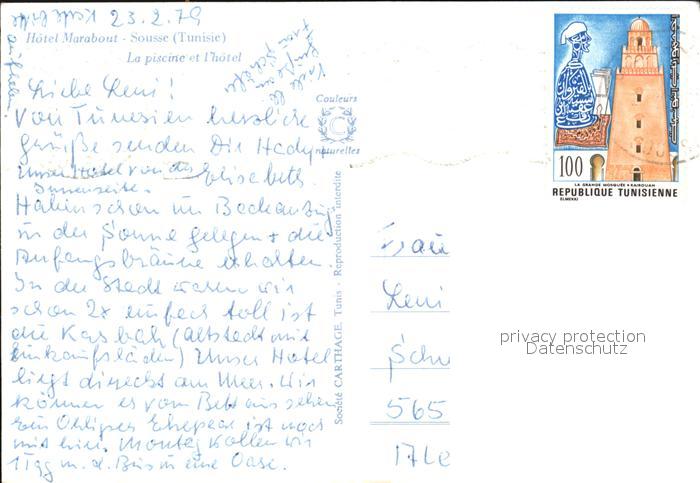 23.2.79
Hôtel Marabout - Sousse (Tunisie)
La piscine et l'hôtel
Liebe Leni!
Von Tunesien herzliche
Grüße senden Dir Hedy
Unser Hotel von der Elisabeth
Innenseite.
Haben schon im Badeanzug
in der Sonne gelegen + die
Anfangsbräune erhalten.
In der Stadt waren wir
schon 2x einfach toll ist
die Kasbah (Altstadt mit
Einkaufsläden) Unser Hotel
liegt direckt am Meer. Wir
können es vom Bett aus sehen
Ein Ehepaar ist noch
mit hier. Montag wollen wir
1 Tag m. d. Bus in eine Oase.
Couleurs
naturelles
Société CARTHAGE, Tunis - Reproduction interdite
100
LA GRANDE MOSQUÉE • KAIROUAN
REPUBLIQUE TUNISIENNE
ELMEKKI
Frau
Leni
Schu
565
privacy protection
Datenschutz